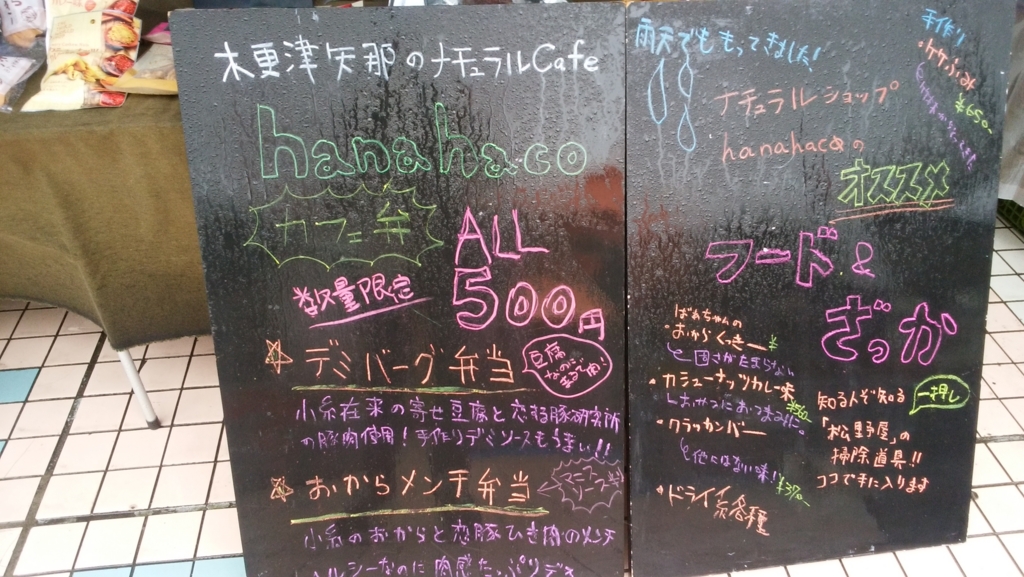 木更津矢那のナチュラルCafe
hanahaco
カフェ弁
ALL
500円
数量限定
デミバーグ弁当
豆腐
なのに
小糸在来の寄せ豆腐と恋する豚研究所
の豚肉使用！手作りデミソースもうまい!!
おからメンチ弁当
小糸のおからと恋豚ひき肉のメンチ
ヘルシーなのに肉感たっぷりデス
雨天でももってきました！
ナチュラルショップ
hanahacoの
オススメ
手作り
¥650
フード&
ざっか
ばあちゃんの
おからくっきー
固さがたまらない
カシューナッツカレー味
おやつにおつまみに。
クラッカンバー
他にはない味！
ドライ系各種
一押し
知る人ぞ知る
「松野屋」の
掃除道具!!
ココで手に入ります